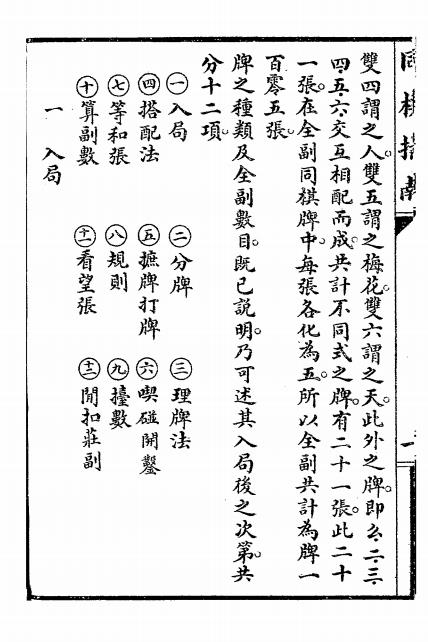 雙四謂之人。雙五謂之梅花。雙六謂之天。此外之牌。即么.二.三.
四.五.六.交互相配而成。共計不同式之牌。有二十一張。此二十
一張。在全副同棋牌中。每張各化為五。所以全副共計為牌一
百零五張。
牌之種類及全副數目。既已說明。乃可述其入局後之次第。共
分十二項。
㊀入局 ㊁分牌 ㊂理牌法
㊃搭配法 ㊄摭牌打牌 ㊅喫碰開鑿
㊆等和張 ㊇規則 ㊈擡數
㊉算副數 十一看望張 十二閒扣莊副
一 入局